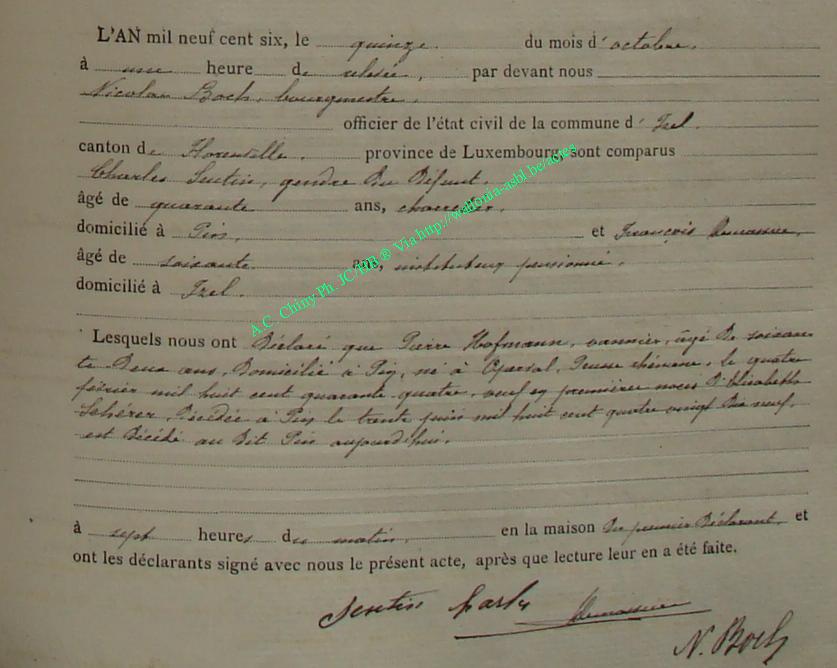 L'AN mil neuf cent six, le quinze du mois d'octobre.
à une heure de relevée, par devant nous
Nicolas Boch, bourgmestre,
officier de l'état civil de la commune d'Izel.
canton de Florenville. province de Luxembourg, sont comparus
Charles Sentin, gendre du défunt.
âgé de quarante ans, charretier,
domicilié à Pin, et François
âgé de soixante ans, instituteur pensionné,
domicilié à Izel.
Lesquels nous ont déclaré que Pierre Hofmann, vannier, âgé de soixan
te deux ans, domicilié à Pin, né à Prusse rhénane, le quatre
février mil huit cent quarante-quatre, veuf en premières noces d'Elisabeth
Scherer, décédée à Pin le trente juin mil huit cent quatre vingt dix neuf,
est décédé au dit Pin aujourd'hui,
à sept heures du matin, en la maison du premier déclarant, et
ont les déclarants signé avec nous le présent acte, après que lecture leur en a été faite.
Sentin Charles
N. Boch
A.C. Chiny Ph. JC/HB ® Via http://wallonia-asbl.be/actes